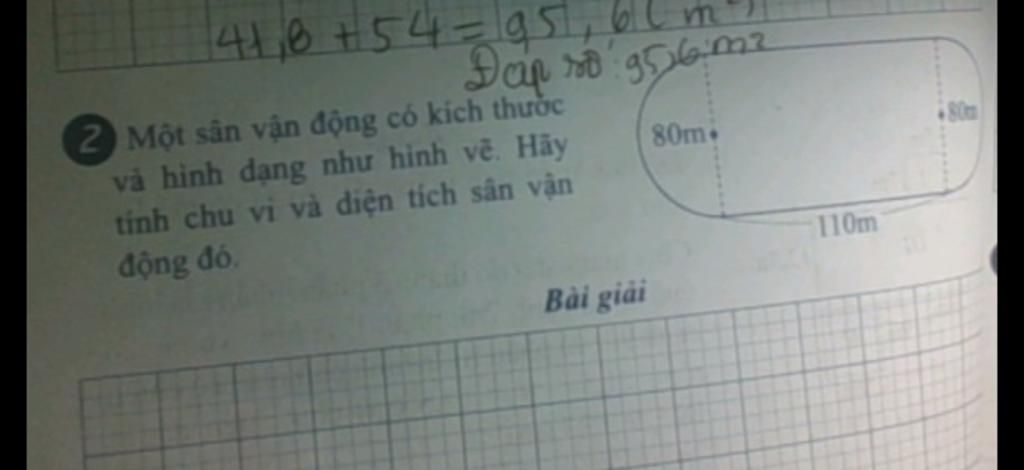 41,8 + 54 = 95,6 (m²)
Đáp số: 95,6 m²
2 Một sân vận động có kích thước
và hình dạng như hình vẽ. Hãy
tính chu vi và diện tích sân vận
động đó.
80m
80m
110m
Bài giải